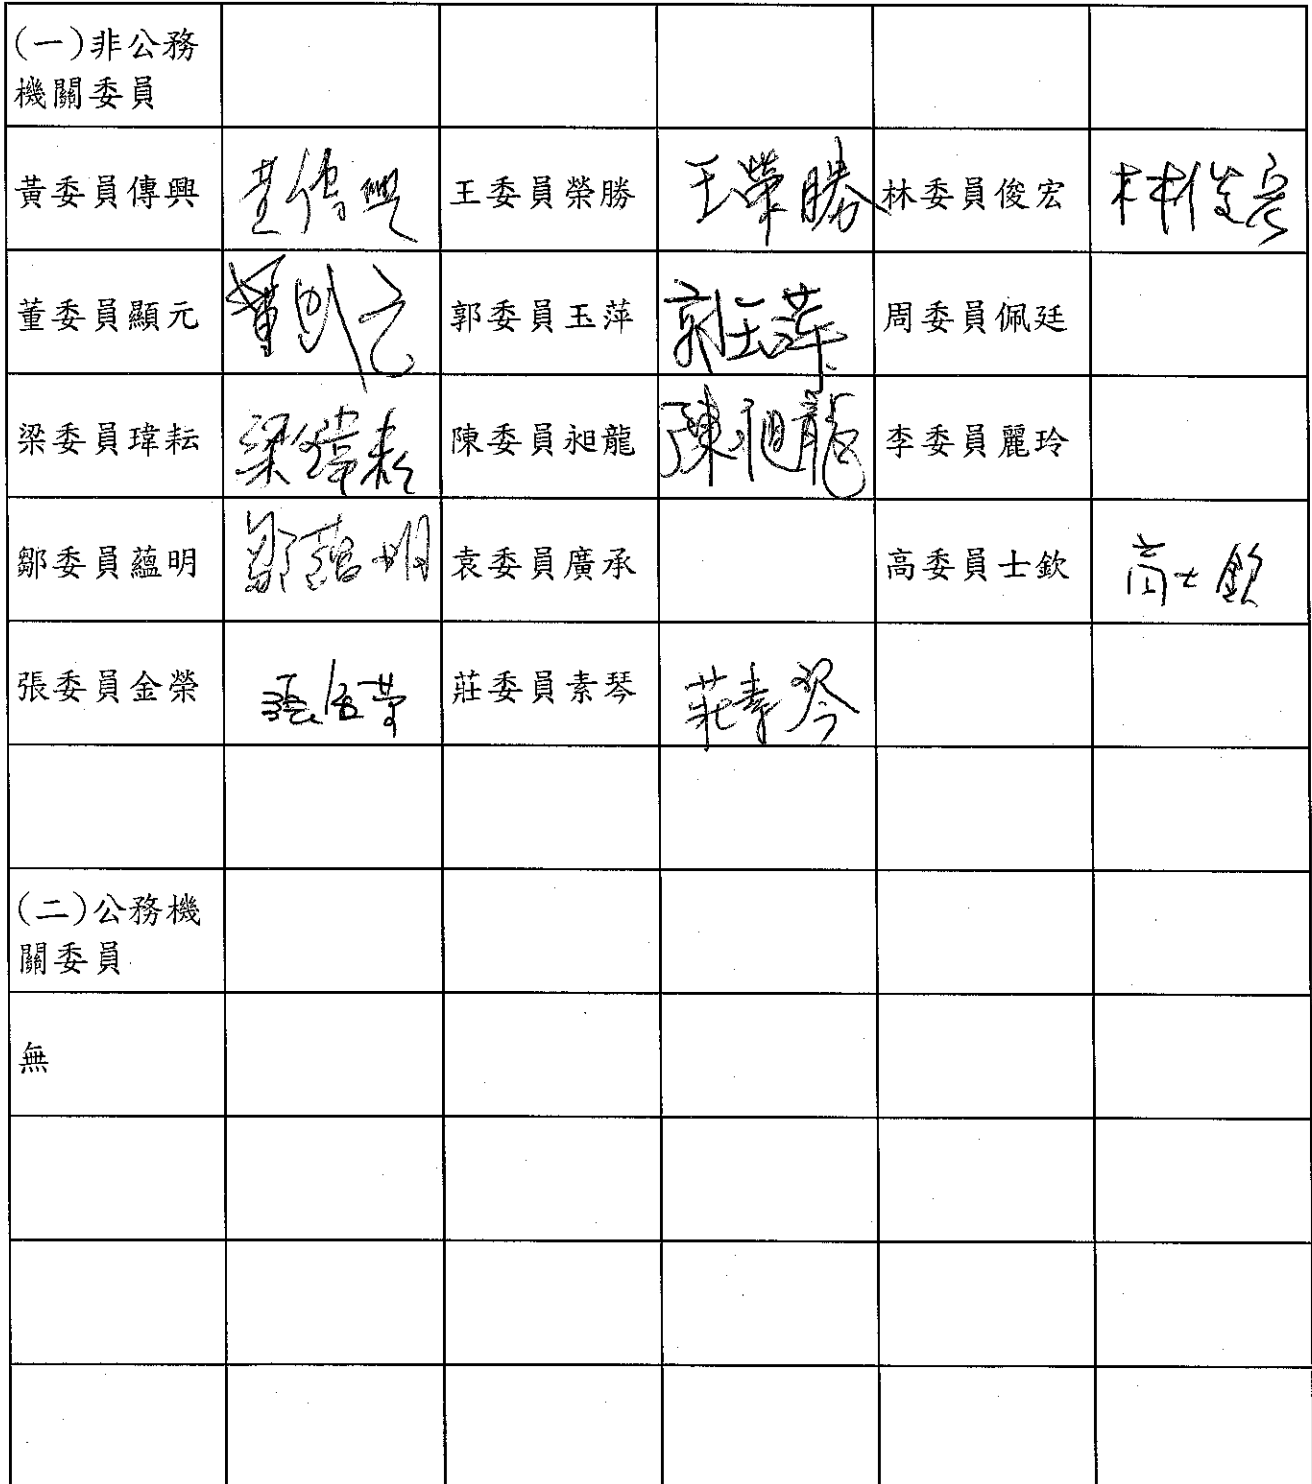 (一)非公務
機關委員
黃委員傳興 黃傳興 王委員榮勝 王榮勝 林委員俊宏 林俊宏
董委員顯元 董顯元 郭委員玉萍 郭玉萍 周委員佩廷
梁委員瑋耘 梁瑋耘 陳委員昶龍 陳昶龍 李委員麗玲
鄒委員蘊明 鄒蘊明 袁委員廣承 高委員士欽 高士欽
張委員金榮 張金榮 莊委員素琴 莊素琴
(二)公務機
關委員
無